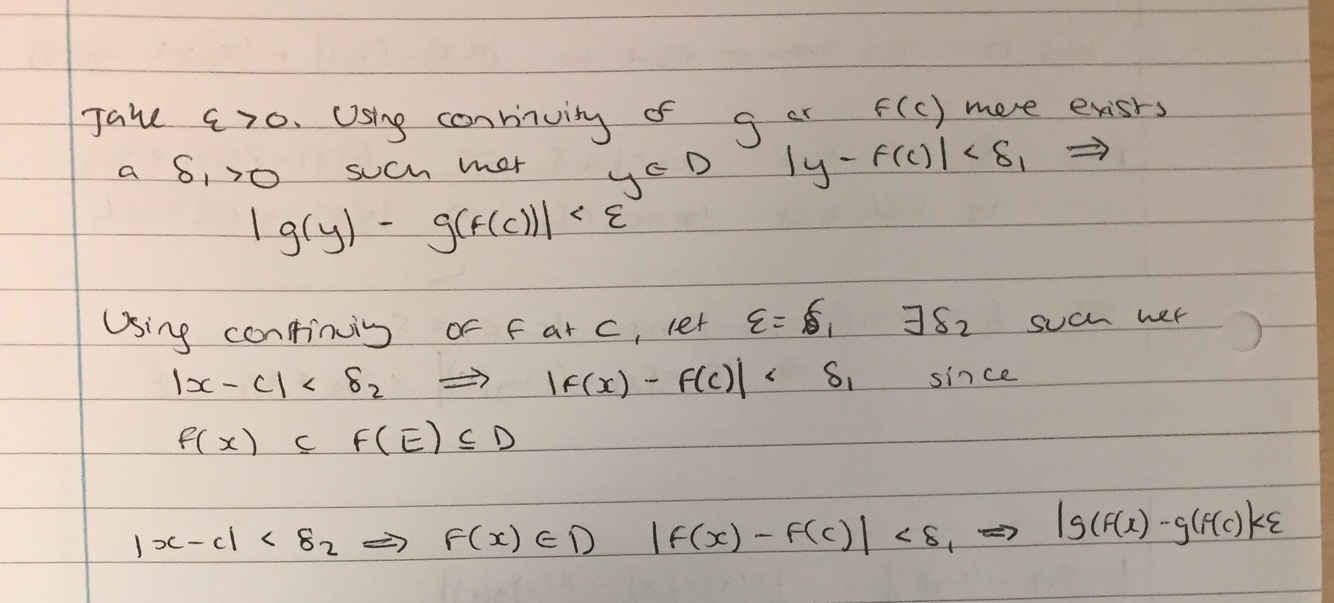 Take ε > 0. Using continuity of g at f(c) there exists
a δ₁ > 0 such that y ∈ D |y - f(c)| < δ₁ ⇒
|g(y) - g(f(c))| < ε
Using continuity of f at c, let ε = δ₁ ∃δ₂ such that
|x - c| < δ₂ ⇒ |f(x) - f(c)| < δ₁ since
f(x) ⊂ f(E) ⊆ D
|x - c| < δ₂ ⇒ f(x) ∈ D |f(x) - f(c)| < δ₁ ⇒ |g(f(x) - g(f(c)| < ε